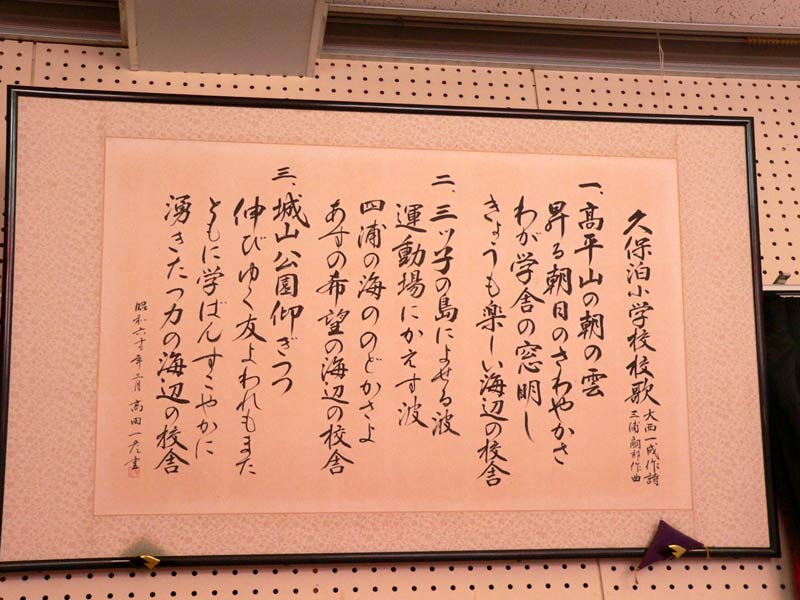 久保泊小学校校歌
大西一成作詩
三浦嗣郎作曲
一、高平山の朝の雲
昇る朝日のさわやかさ
わが学舎の窓明し
きょうも楽しい海辺の校舎
二、三ッ子の島によせる波
運動場にかえす波
四浦の海ののどかさよ
あすの希望の海辺の校舎
三、城山公園仰ぎつつ
伸びゆく友よわれもまた
ともに学ばんすこやかに
湧きたつ力の海辺の校舎
昭和六十三年三月 高田一彦書